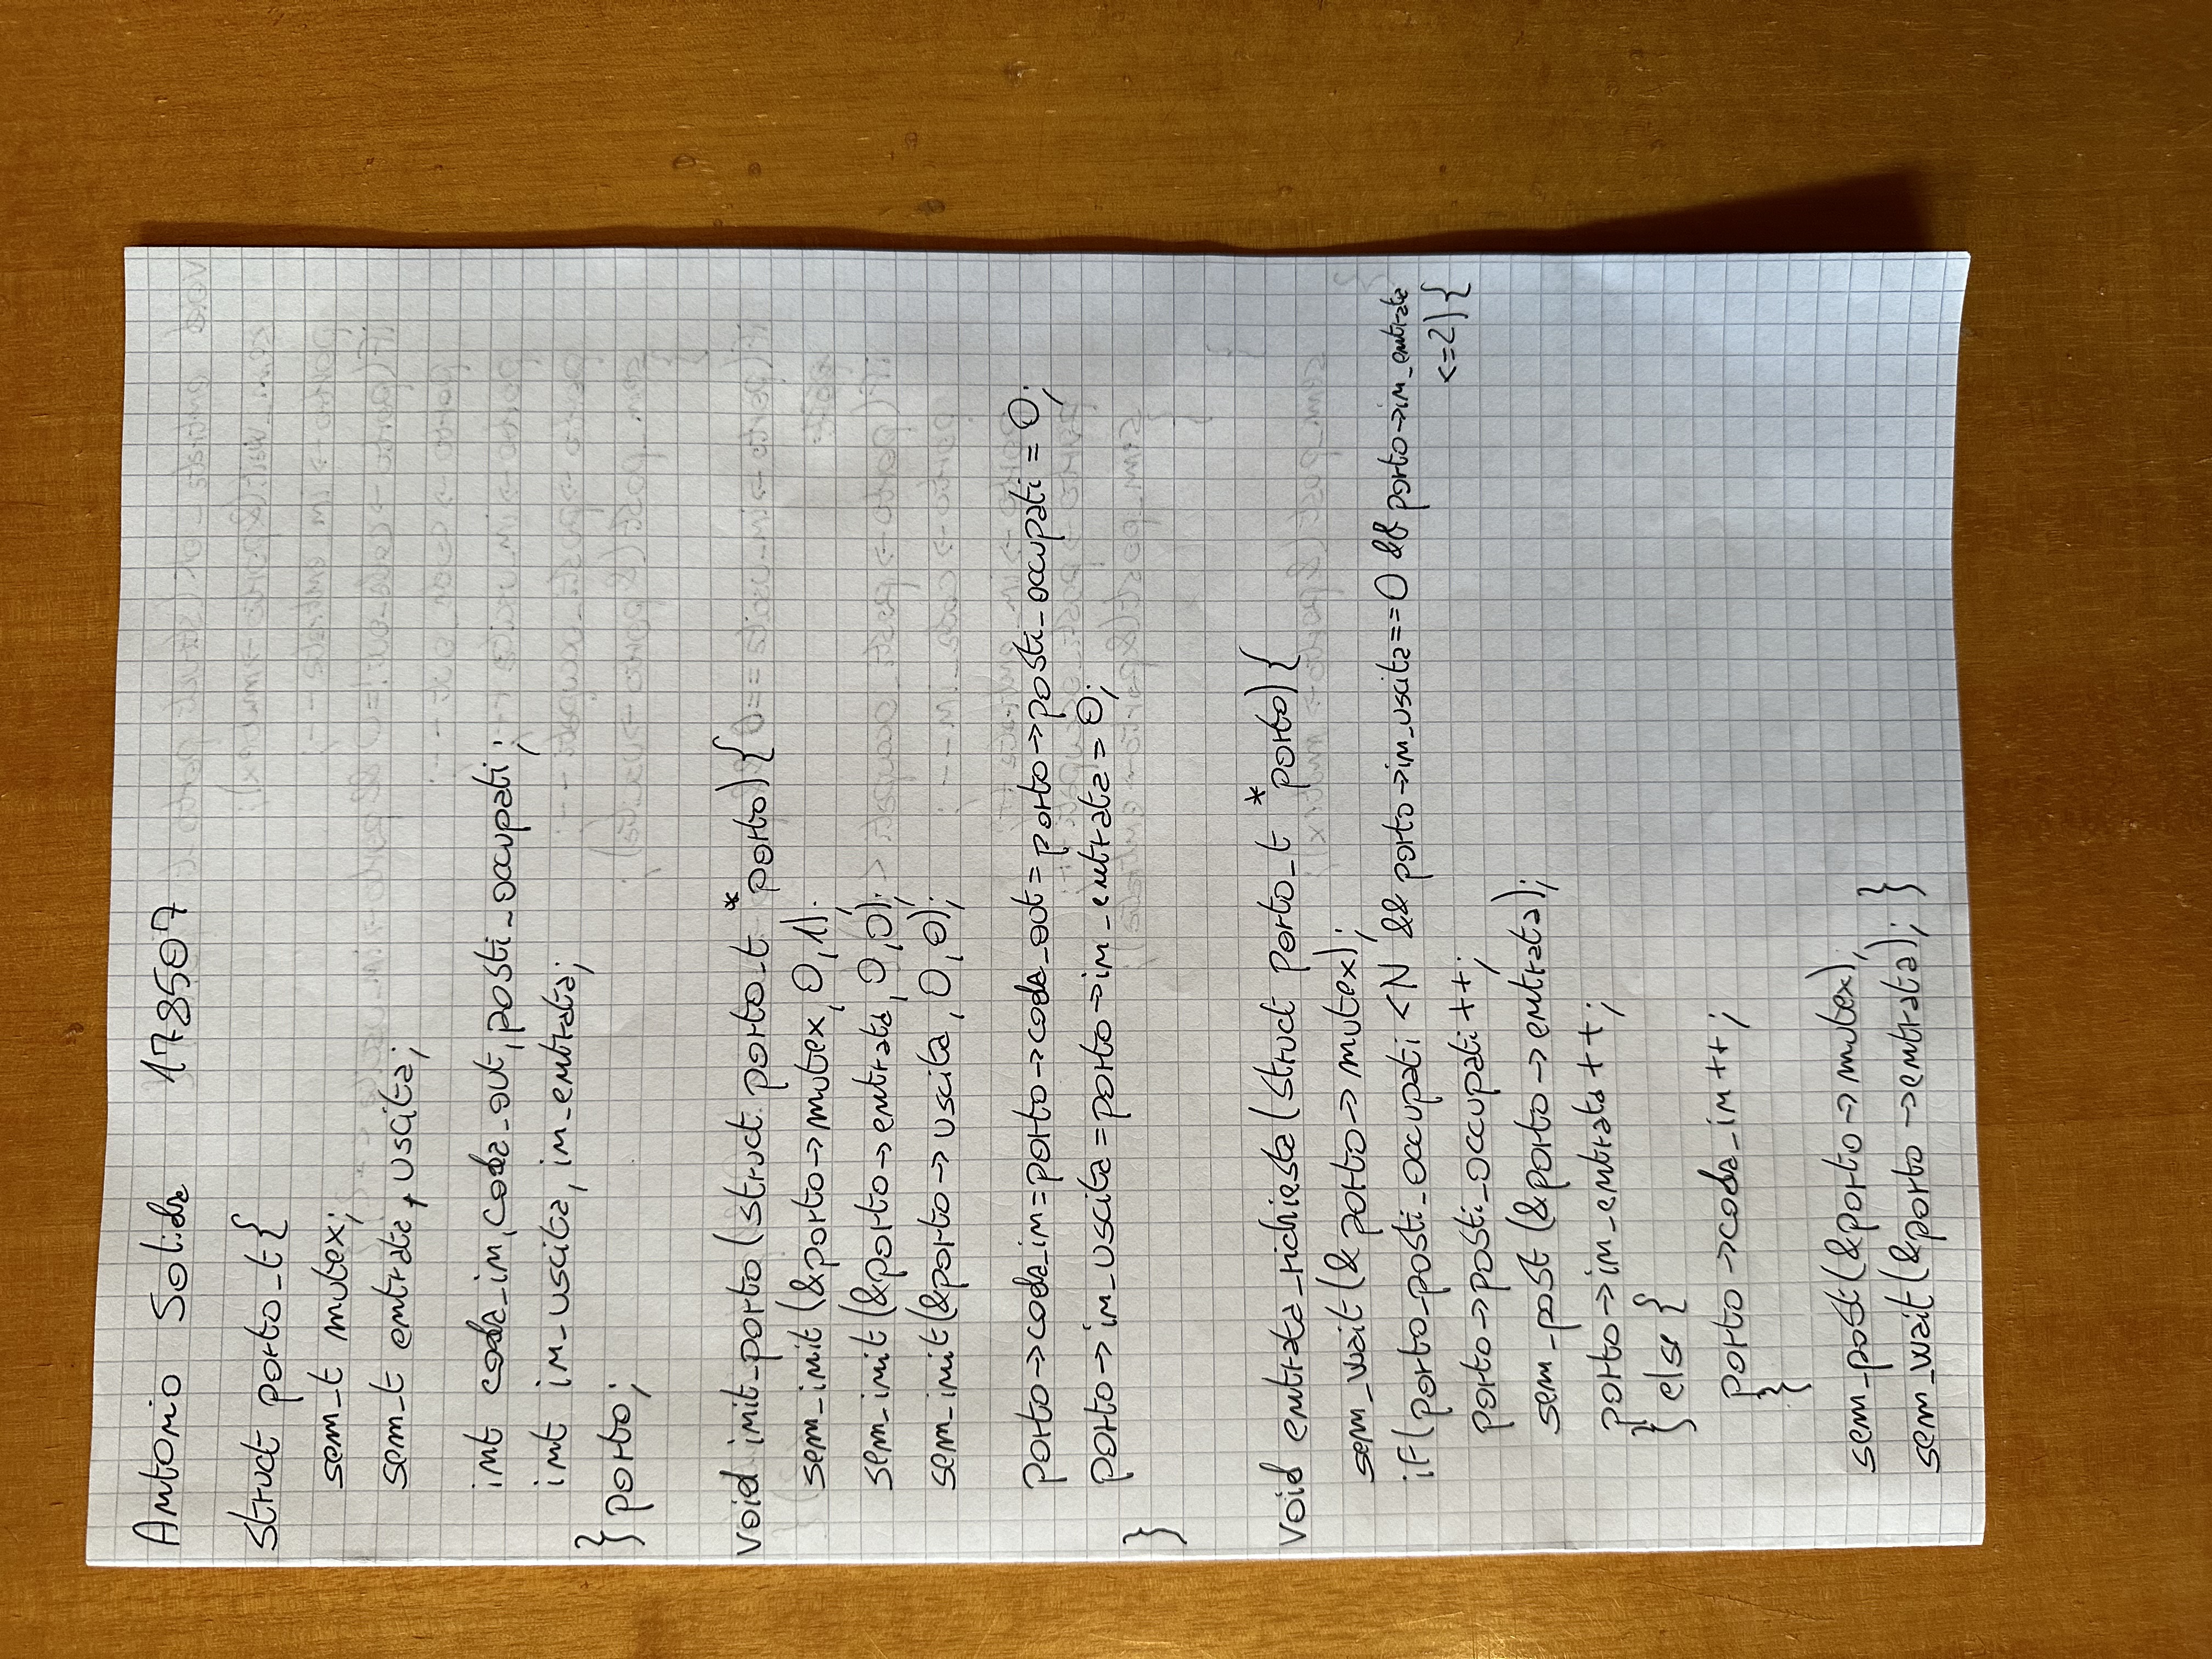 Antonio Solida 178507
struct porto_t{
sem_t mutex;
sem_t entrata, uscita;
int coda_in, coda_out, posti_occupati;
int in_uscita, in_entrata;
} porto;
void init_porto (struct porto_t *porto){
sem_init (&porto->mutex, 0,1);
sem_init (&porto->entrata, 0,0);
sem_init(&porto->uscita, 0,0);
porto->coda_in=porto->coda_out=porto->posti_occupati = 0;
porto->in_uscita=porto->in_entrata= 0;
}
void entrata_richiesta (struct porto_t *porto){
sem_wait (& porto-> mutex);
if(porto_posti_occupati <N && porto->in_uscita==0 && porto->in_entrata
<=2){
porto->posti_occupati++;
sem_post (&porto->entrata);
porto->in_entrata++;
} else {
porto->coda_in++;
}
sem_post(&porto->mutex);
sem_wait(&porto->entrata); }